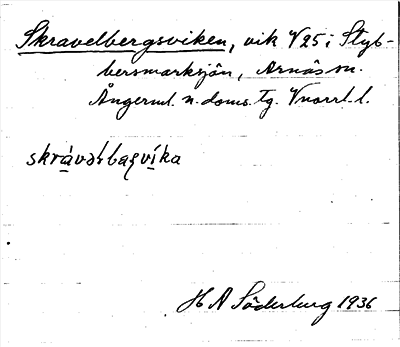 Skravelbergsviken, vik V25 i Styb-
bersmarksjön, Arnäs sn.
Ångerml. n. doms. Tg. Vnorrl. l.
skrávəłbaʂvíka
H A Söderberg 1936